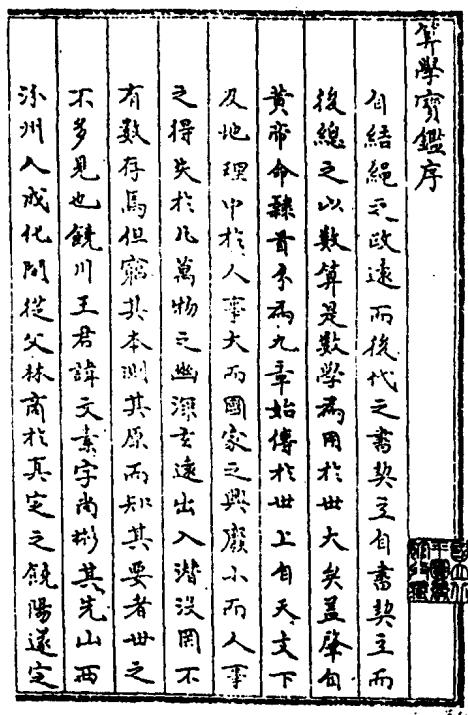 算學寶鑑序
自結繩之政遠而後代之書契立自書契立而
後總之以數算是數學為用於世大矣蓋肇自
黃帝命隸首分為九章始傳於世上自天文下
及地理中於人事大而國家之興廢小而人事
之得失於凡萬物之幽深玄遠出入潛沒罔不
有数存焉但窮其本測其原而知其要者世之
不多見也饒川王君諱文素字尚彬其先山西
汾州人成化間從父林商於真定之饒陽遂定